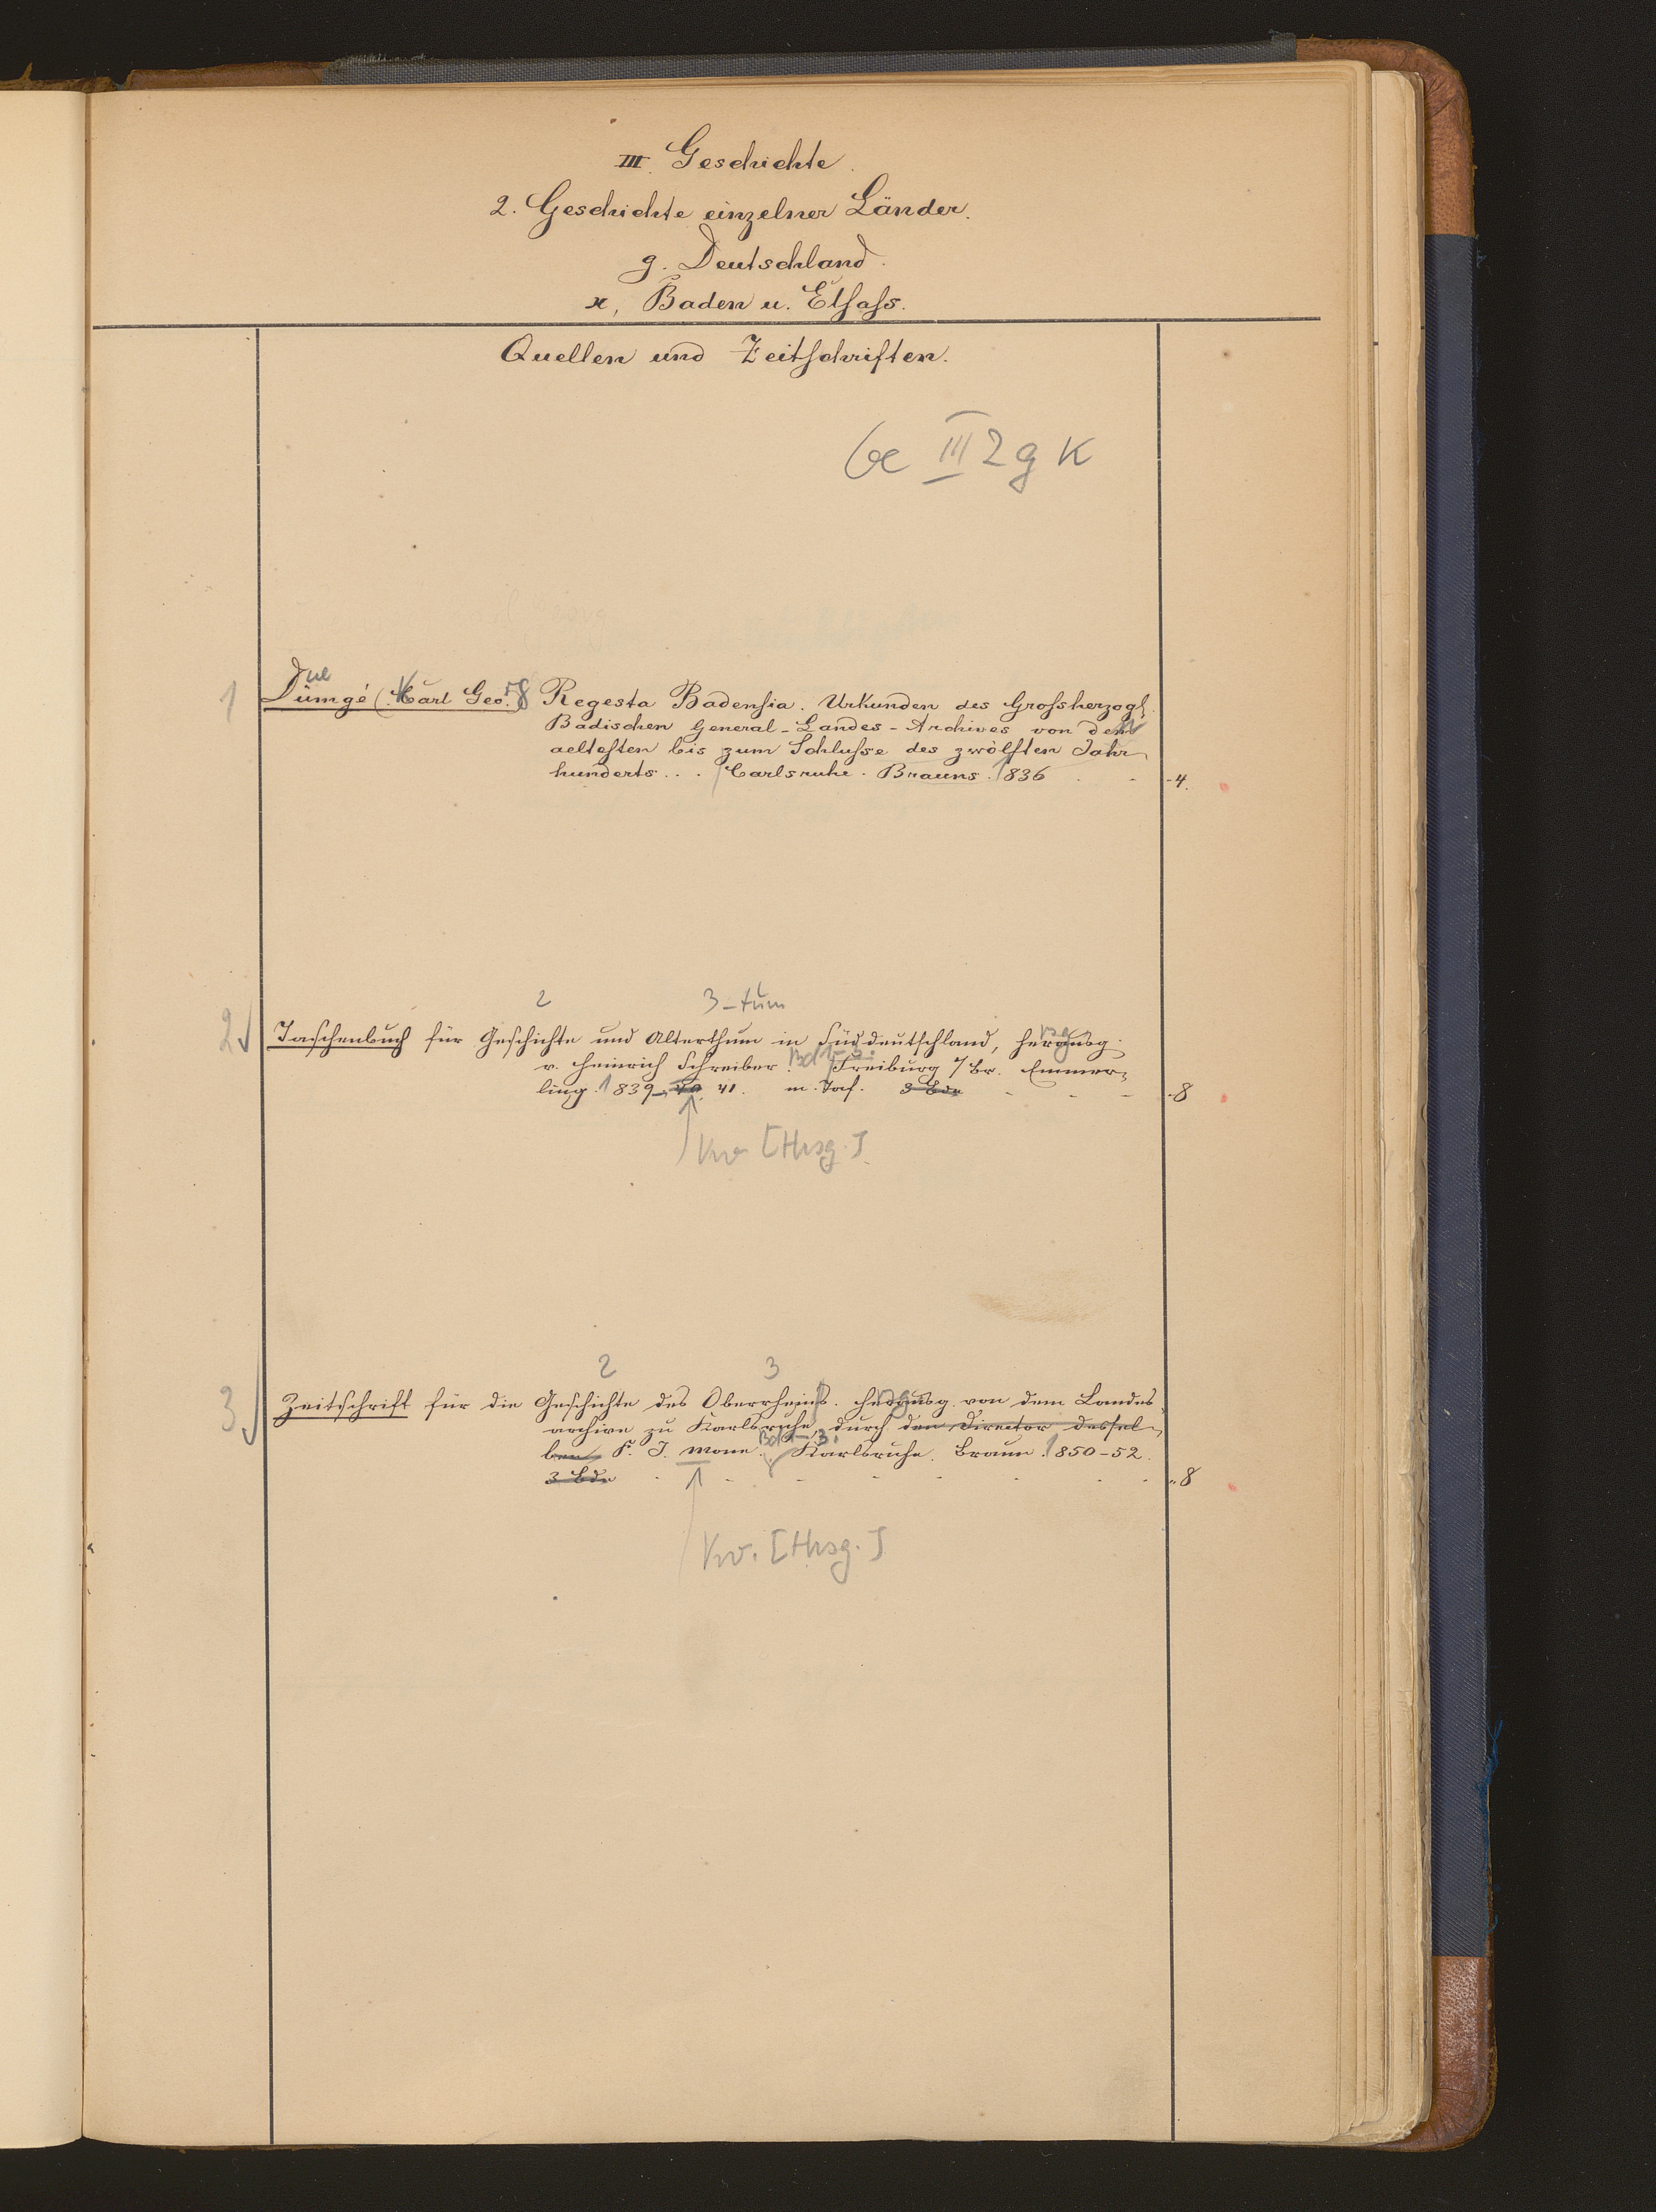 III. Geschichte.
2. Geschichte einzelner Länder.
g. Deutschland.
ϰ, Baden u. Elsass.
Quellen und Zeitschriften.
Ge III 2 g K
ue
1 Dümgé (Carl Geo.) Regesta Badensia. Urkunden des Grossherzogl.
Badischen General-Landes-Archives von den
aeltesten bis zum Schlusse des zwölften Jahr-
hunderts... Carlsruhe. Brauns. 1836 - 4.
2 3 -tum
2 Taschenbuch für Geschichte und Alterthum in Süddeutschland, herausg.
v. Heinrich Schreiber. Bd 1-3. Freiburg i/Br. Emmer-
ling. 1839-40. 41. m. Taf. 3 Bde - - - 8
[Hrsg.]
2 3
3 Zeitschrift für die Geschichte des Oberrheins. herausg. von dem Landes
archive zu Karlsruhe, durch den Director dessel-
ben F. J. Mone. Bd 1-3. Karlsruhe. Braun. 1850-52.
3 Bde - - - - - - - - 8
[Hrsg.]